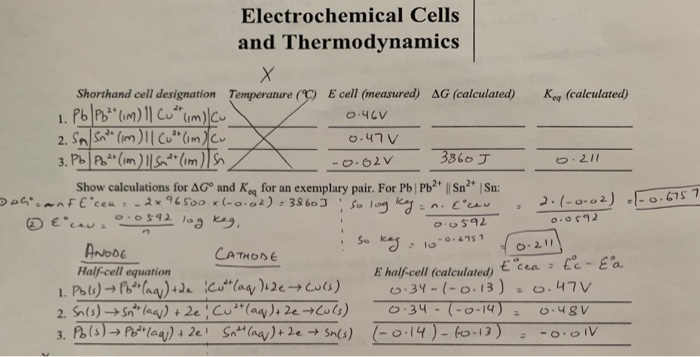 Electrochemical Cells
and Thermodynamics
X
Shorthand cell designation Temperature (°C) E cell (measured) ΔG (calculated) Keq (calculated)
1. Pb|Pb²⁺(1m)||Cu²⁺(1m)|Cu 0.46V
2. Sn|Sn²⁺(1m)||Cu²⁺(1m)|Cu 0.47V
3. Pb|Pb²⁺(1m)||Sn²⁺(1m)|Sn -0.02V 3860 J 0.211
Show calculations for ΔG° and Keq for an exemplary pair. For Pb | Pb²⁺ || Sn²⁺ | Sn:
ΔG° = -nFE°cell = -2 x 96500 x (-0.02) = 3860J ; So log keq = n. E°cell / 0.0592 = 2.(-0.02) / 0.0592 = -0.6757
② E°cell = 0.0592 / n log keq,
So keq = 10^-0.6757 = 0.211
ANODE CATHODE
Half-cell equation E half-cell (calculated) E°cell = E°c - E°a
1. Pb(s) → Pb²⁺(aq) + 2e ¦ Cu²⁺(aq) + 2e → Cu(s) 0.34 - (-0.13) = 0.47V
2. Sn(s) → Sn²⁺(aq) + 2e ¦ Cu²⁺(aq) + 2e → Cu(s) 0.34 - (-0.14) = 0.48V
3. Pb(s) → Pb²⁺(aq) + 2e ¦ Sn²⁺(aq) + 2e → Sn(s) (-0.14) - (-0.13) = -0.01V